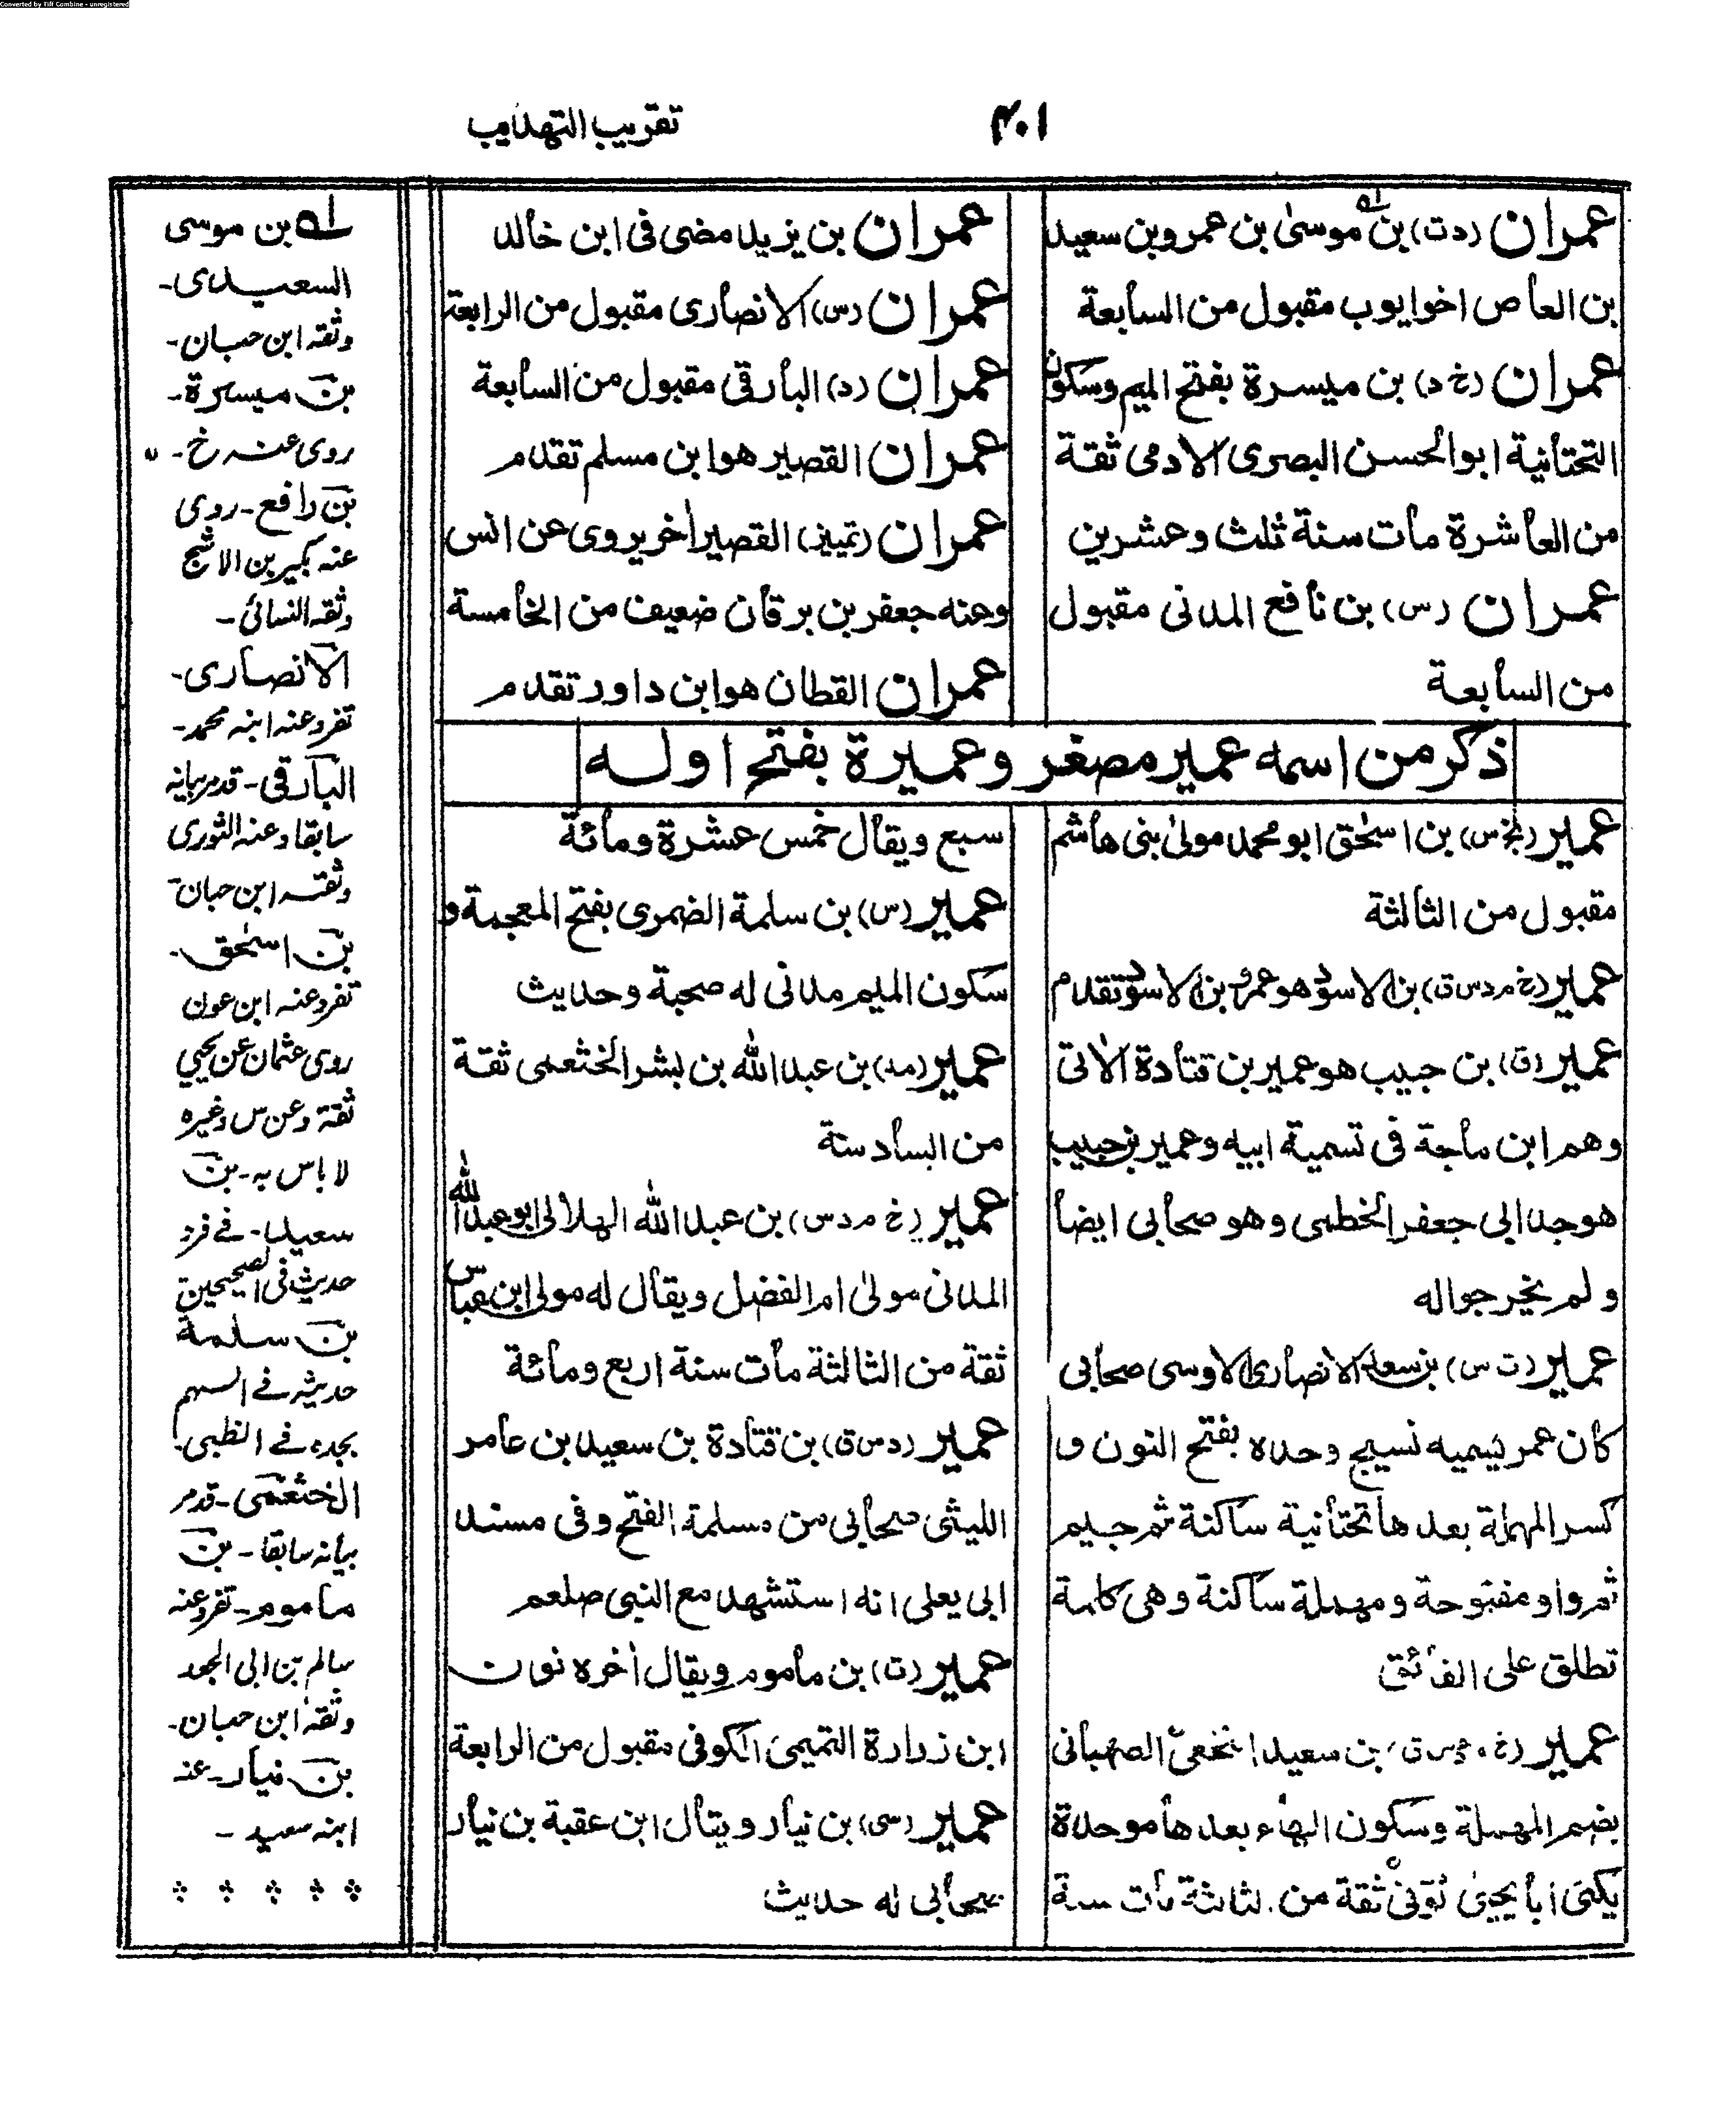 Converted by Tiff Combine - unregistered
۴۰۱
تقريب التهذيب
عمران (د ت) بن موسىٰ بن عمرو بن سعيد
بن العاص اخوايوب مقبول من السابعة
عمران (خ د) بن ميسرة بفتح الميم وسكون
التحتانية ابوالحسن البصرى الادمى ثقة
من العاشرة مات سنة ثلث وعشرين
عمران (س) بن نافع المدنى مقبول
من السابعة
عمران بن يزيد مضى فى ابن خالد
عمران (س) الانصارى مقبول من الرابعة
عمران (د) البارقى مقبول من السابعة
عمران القصير هوابن مسلم تقدم
عمران (تمييز) القصير اخر يروى عن انس
وعنه جعفر بن برقان ضعيف من الخامسة
عمران القطان هوابن داور تقدم
ذكر من اسمه عمير مصغر وعميرة بفتح اوله
عمير (بخ س) بن اسحٰق ابو محمد مولىٰ بنى هاشم
مقبول من الثالثة
عمير (خ م د س ق) بن الاسود هو عمرو بن الاسود تقدم
عمير (ق) بن حبيب هو عمير بن قتادة الاٰتى
وهم ابن ماجة فى تسمية ابيه وعمير بن حبيب
هو جد ابى جعفر الخطمى وهو صحابى ايضا
ولم يخرجواله
عمير (ت س) بن سعد الانصارى الاوسى صحابى
كان عمر يسميه نسيج وحده بفتح النون و
كسر المهملة بعدها تحتانية ساكنة ثم جيم
ثم واو مفتوحة ومهملة ساكنة وهى كلمة
تطلق على الفائق
عمير (خ م د س ق) بن سعيد النخعىّ الصهبانى
بضم المهملة وسكون الهاء بعدها موحدة
يكنى ابا يحيىٰ كوفى ثقة من الثالثة مات سنة
سبع ويقال خمس عشرة ومائة
عمير (س) بن سلمة الضمرى بفتح المعجمة و
سكون الميم مدنى له صحبة وحديث
عمير (مد) بن عبدالله بن بشر الخثعمى ثقة
من السادسة
عمير (خ م د س) بن عبدالله الهلالى ابو عبدالله
المدنى مولىٰ ام الفضل ويقال له مولى ابن عباس
ثقة من الثالثة مات سنة اربع ومائة
عمير (د س ق) بن قتادة بن سعيد بن عامر
الليثى صحابى من مسلمة الفتح وفى مسند
ابى يعلى انه استشهد مع النبى صلعم
عمير (ت) بن ماموم ويقال اٰخره نون
ابن زرارة التميمى الكوفى مقبول من الرابعة
عمير (سى) بن نيار ويقال ابن عقبة بن نيار
صحابى له حديث
له بن موسى
السعيدى-
وثقه ابن حبان-
بن ميسرة-
روى عنه خ-
بن رافع-روى
عنه بكير بن الاشج
وثقه النسائى-
الانصارى-
تفرد عنه ابنه محمد-
البارقى-قدم بيانه
سابقا وعنه الثورى
وثقه ابن حبان-
بن اسحٰق-
تفرد عنه ابن عون
روى عثمان عن يحيي
ثقة وعن س وغيره
لا باس به-بن
سعيد-
حديث فى الصحيحين
بن سلمة
حديثه فے السهم
يجده فے الظبى-
الخثعمى-قدم
بيانه سابقا-بن
ماموم-تفرد عنه
سالم بن ابى الجعد
وثقه ابن حبان-
بن نيار-عنه
ابنه سعيد-